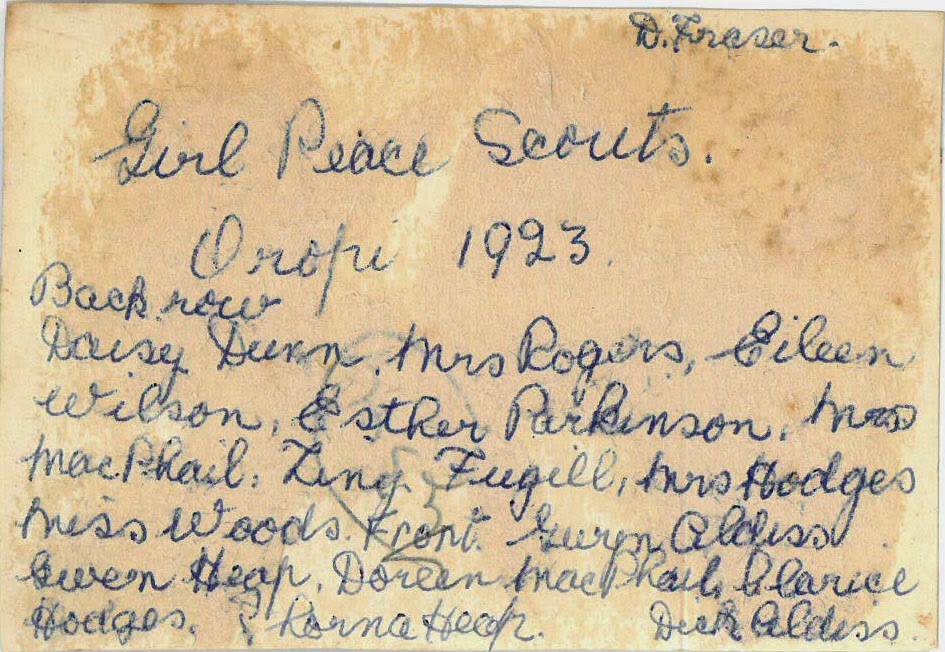 D. Fraser.
Girl Peace Scouts.
Oropi 1923.
Back row
Daisy Dunn, Mrs Rogers, Eileen
Wilson, Esther Parkinson, Mrs
MacPhail, Fugill, Mrs Hodges
Miss Woods. Front. Gwyn Aldiss
Gwen Heap, Doreen MacPhail, Clarice
Hodges, Lorna Heap. Dick Aldiss.